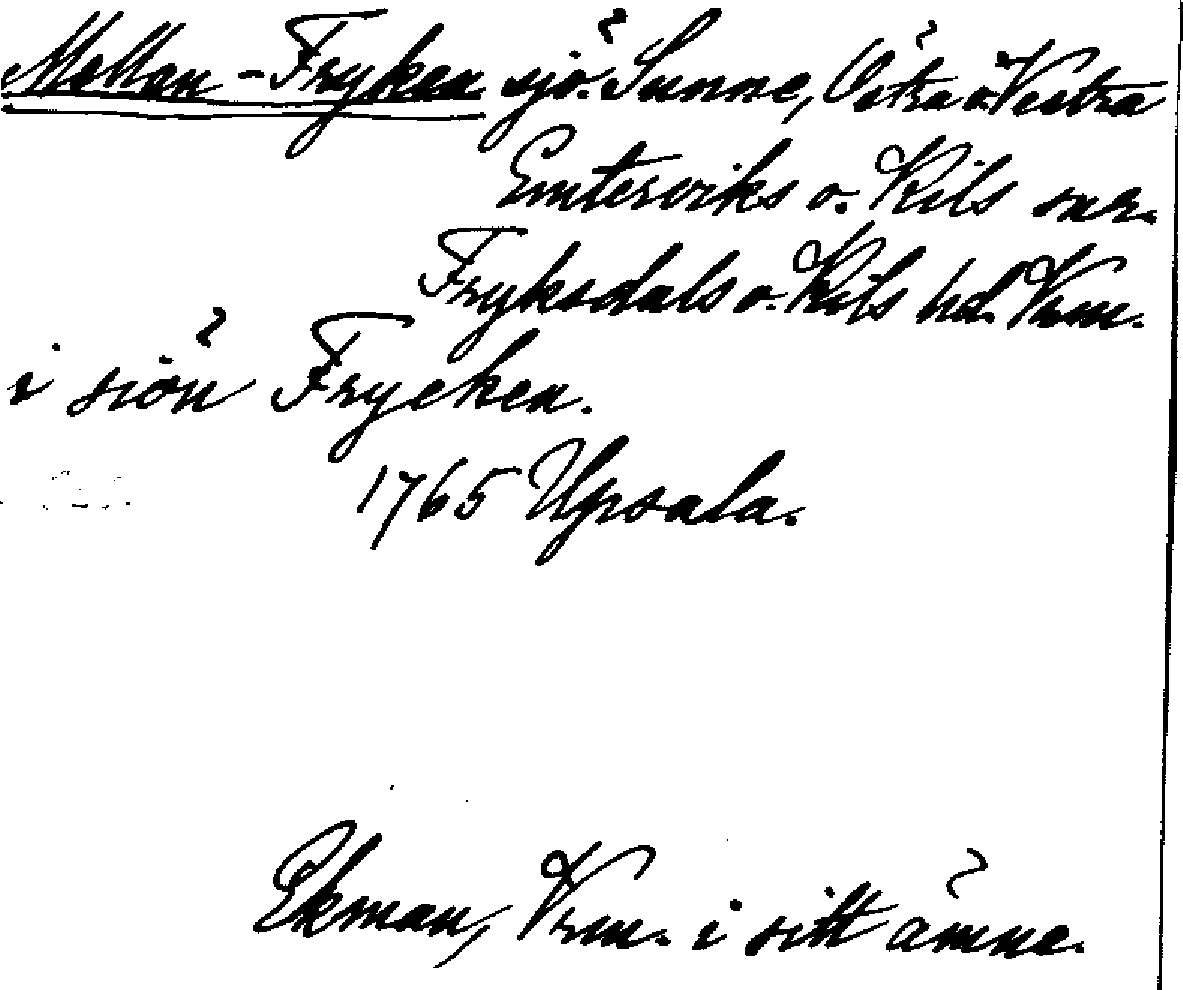 Mellan-Fryken sjö. Sunne, Östra o. Vestra
Emterviks o. Kils snr.
Fryksdals o. Kils hd. Vrm.
i siön Frycken.
1765 Upsala.
Ekman, Vrm. i sitt ämne.